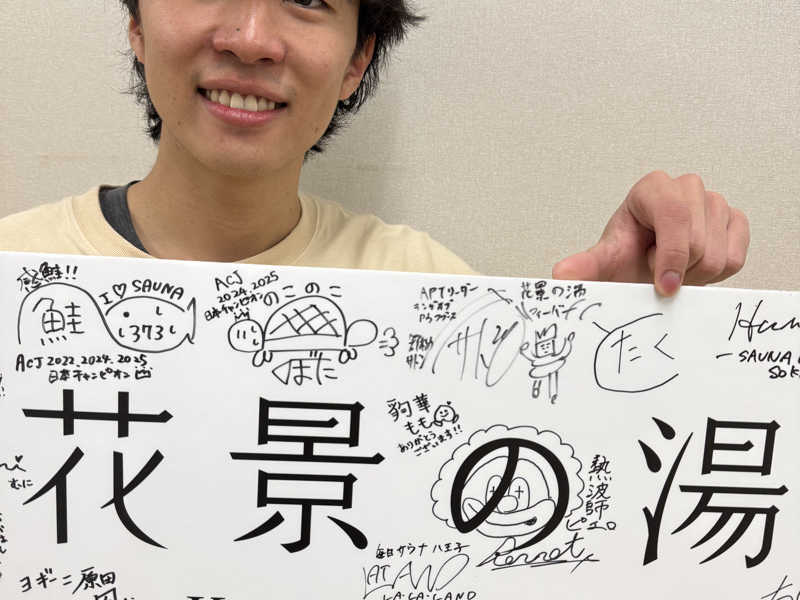 感鮭!!
鮭
I♡SAUNA
1373
ACJ 2022.2024.2025
日本チャンピオン
ACJ
2024.2025
日本チャンピオン
のこのこ
ぼた
APTリーダー
サトシ
花景の湯
フィーバー
たく
SAUNA
花景の湯
狗華
もも
ありがとう
ございます!!
熱波師
ピエロ
Pierrot
むに
毎日サウナ 八王子
LA・LA・LAND
ヨギーニ原田